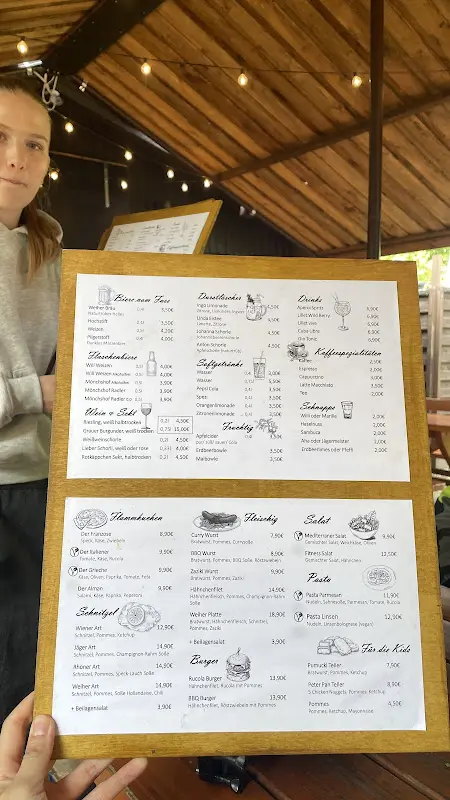 Biere vom Fass
Weiher Bräu 0,4l 3,50€
Naturtrübes Helles
Hochstift 0,5l 3,50€
Weizen 0,5l 4,20€
Pilgerstoff 0,4l 4,00€
Dunkles Malziambier
Flaschenbiere
Will Weizen 0,5l 4,00€
Will Weizen Alkoholfrei 0,5l 4,00€
Mönchshof Alkoholfrei 0,5l 3,90€
Mönchshof Radler 0,5l 3,90€
Mönchshof Radler 0.0 0,5l 3,90€
Wein & Sekt
Riesling, weiß halbtrocken 0,2l 4,50€
Grauer Burgunder, weiß trocken 0,75l 15,00€
Weißweinschorle 0,2l 4,50€
Lieber Schorli, weiß oder rose 0,33l 4,00€
Rotkäppchen Sekt, halbtrocken 0,2l 4,50€
Durstlöscher
Inga Limonade 4,50€
Linda Eistee 4,50€
Johanna Schorle 4,50€
Johannisbeerschorle
Anton Schorle 4,50€
Softgetränke
Wasser 0,4l 3,00€
Wasser 5,50€
Pepsi Cola 0,4l 3,50€
Spezi 0,4l 3,50€
Orangenlimonade 0,4l 3,50€
Zitronenlimonade 0,4l 3,50€
Fruchtig
Apfelcider 0,4l 3,50€
pur/ süß/ sauer/ Cola
Erdbeerbowle 3,50€
Maibowle 3,50€
Drinks
Aperol Spritz 6,90€
Lillet Wild Berry 6,90€
Lillet Vive 6,90€
Cuba Libre 6,90€
Gin Tonic 6,90€
Kaffeespezialitäten
Kaffee 2,50€
Espresso 2,00€
Cappuccino 3,00€
Latte Macchiato 3,50€
Tee 2,00€
Schnäpse
Willi oder Marille 2,00€
Haselnuss 2,00€
Sambuca 2,00€
Aha oder Jägermeister 2,00€
Erdbeerlimes oder Pfeffi 2,00€
Flammkuchen
Der Franzose 8,90€
Speck, Käse, Zwiebeln
Der Italiener 9,90€
Tomate, Käse, Rucola
Der Grieche 9,90€
Käse, Oliven, Paprika, Tomate, Feta
Der Alman 9,90€
Salami, Käse, Paprika, Peperoni
Schnitzel
Wiener Art 12,90€
Schnitzel, Pommes, Ketchup
Jäger Art 14,90€
Schnitzel, Pommes, Champignon-Rahm Soße
Rhöner Art 14,90€
Schnitzel, Pommes, Speck-Lauch Soße
Weiher Art 14,90€
Schnitzel, Pommes, Soße Hollandaise, Chili
+ Beilagensalat 3,90€
Fleischig
Curry Wurst 7,90€
Bratwurst, Pommes, Currysoße
BBQ Wurst 8,90€
Bratwurst, Pommes, BBQ Soße, Röstzwiebeln
Zaziki Wurst 9,90€
Bratwurst, Pommes, Zaziki
Hähnchenfilet 14,90€
Hähnchenfleisch, Pommes, Champignon-Rahm Soße
Weiher Platte 18,90€
Bratwurst, Hähnchenfleisch, Schnitzel, Pommes, Zaziki
+ Beilagensalat 3,90€
Burger
Rucola Burger 13,90€
Hähnchenfilet, Rucola mit Pommes
BBQ Burger 13,90€
Hähnchenfilet, Röstzwiebeln mit Pommes
Salat
Mediterraner Salat 9,90€
Gemischter Salat, Weißkäse, Oliven
Fitness Salat 12,50€
Gemischter Salat, Hähnchen
Pasta
Pasta Parmesan 11,90€
Nudeln, Sahnesoße, Parmesan, Tomate, Rucola
Pasta Linsen 12,90€
Nudeln, Linsenbolognese (vegan)
Für die Kids
Pumuckl Teller 7,90€
Bratwurst, Nuggets, Pommes, Ketchup
Peter Pan Teller 8,90€
5 Chicken Nuggets, Pommes, Ketchup
Pommes 4,50€
Pommes, Ketchup, Mayonnaise